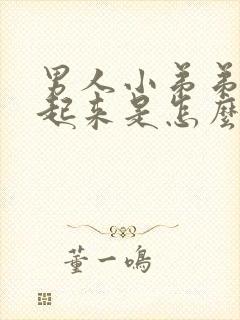 男人小弟弟
起来是怎麽
董一鸣